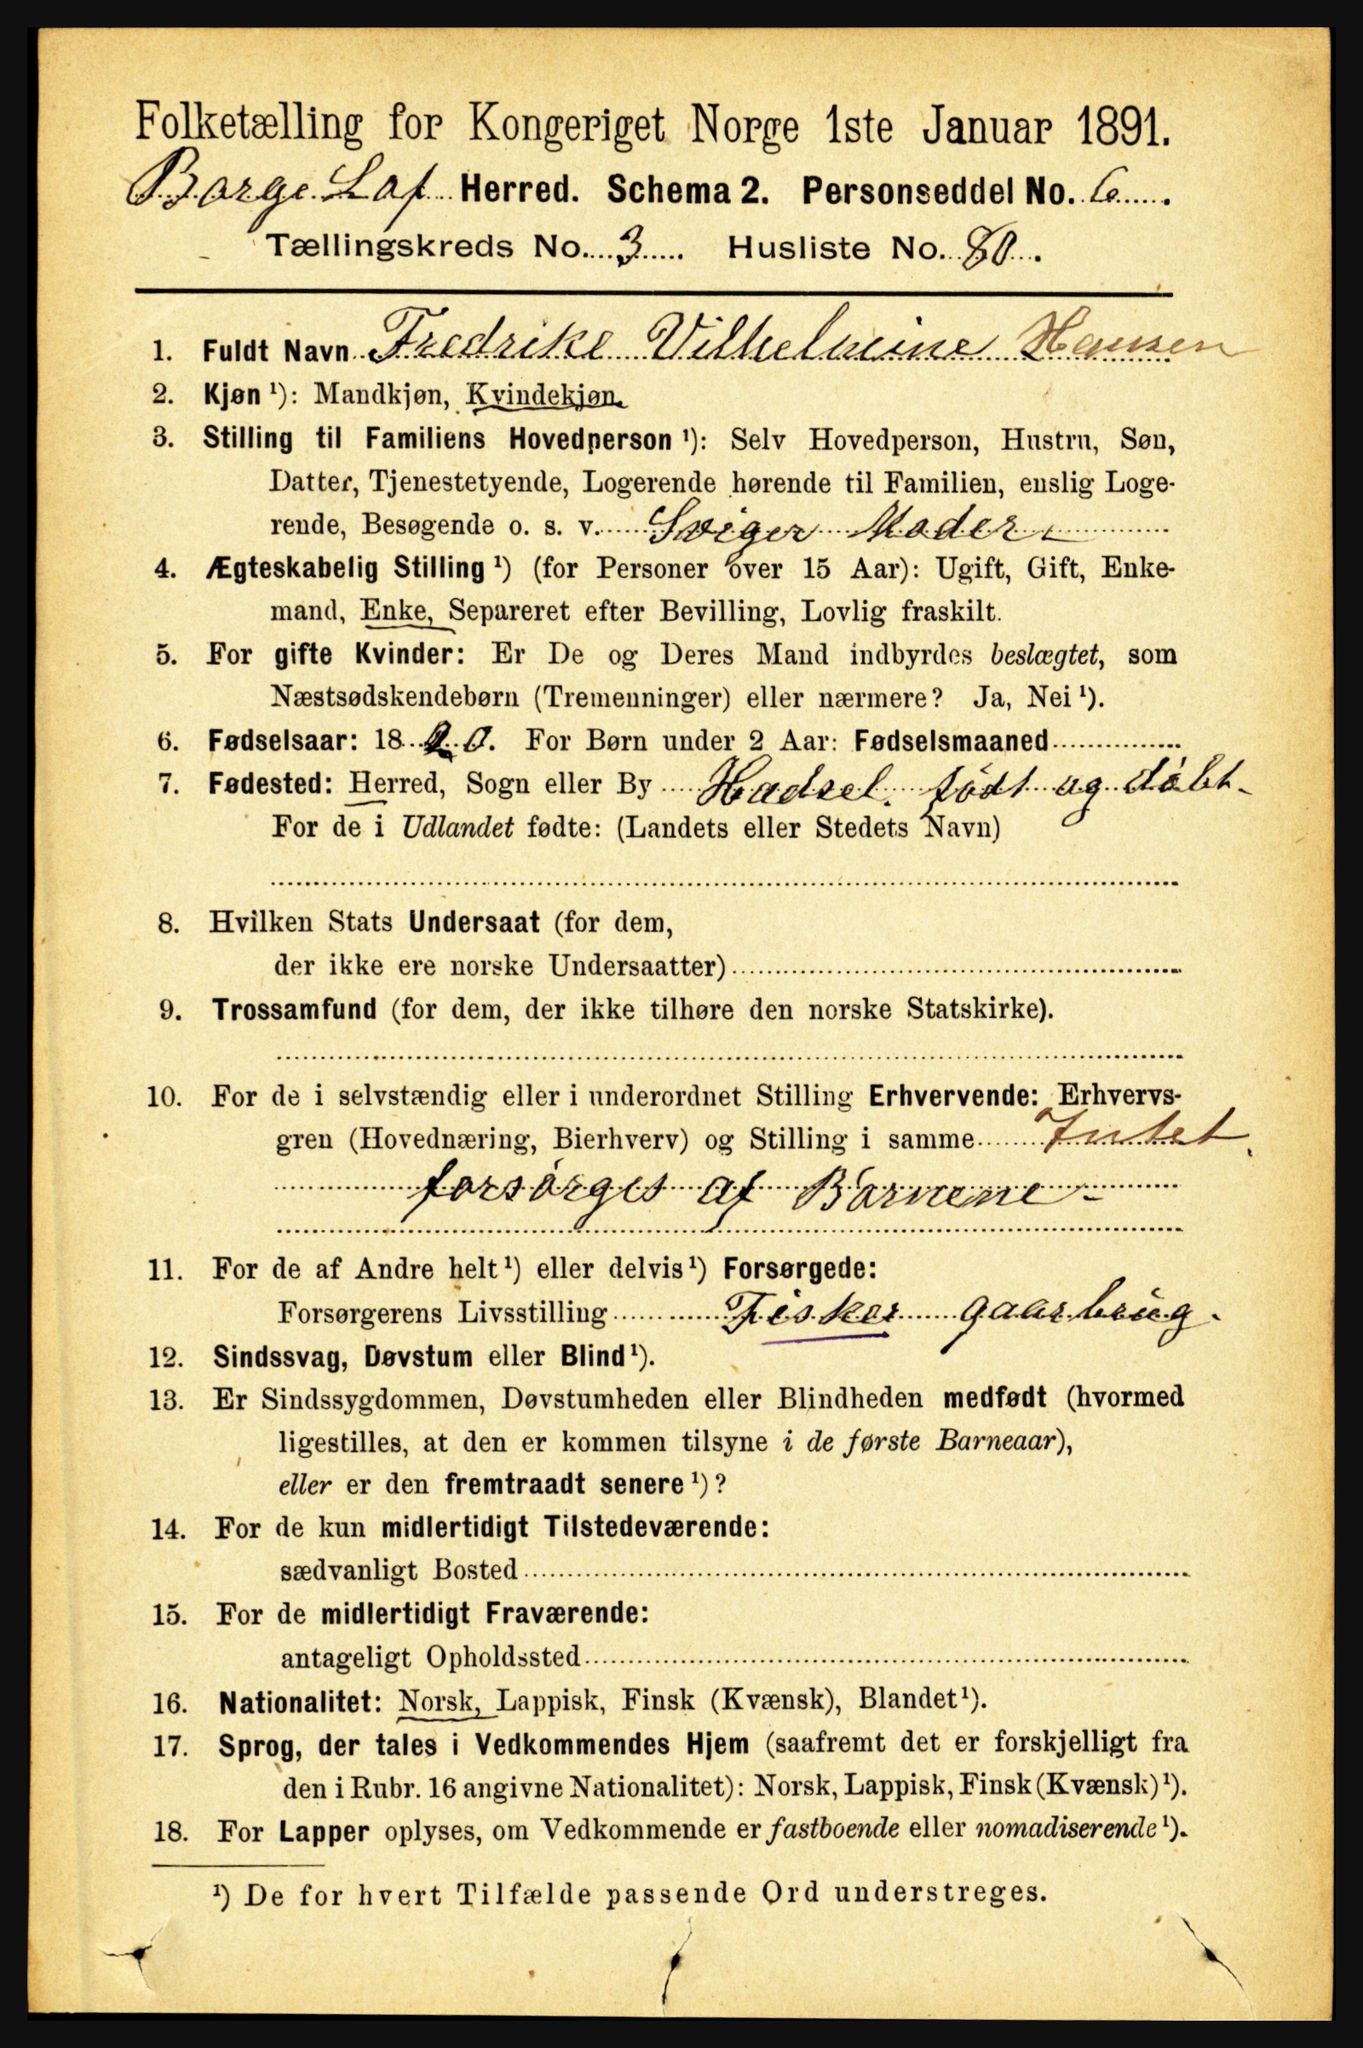 Folketælling for Kongeriget Norge 1ste Januar 1891.
Borge Lof Herred. Schema 2. Personseddel No. 6
Tællingskreds No. 3 Husliste No. 80.
1. Fuldt Navn Fredrike Vilhelmine Hansen
2. Kjøn ¹): Mandkjøn, Kvindekjøn.
3. Stilling til Familiens Hovedperson ¹): Selv Hovedperson, Hustru, Søn,
Datter, Tjenestetyende, Logerende hørende til Familien, enslig Loge-
rende, Besøgende o. s. v. Sviger Moder
4. Ægteskabelig Stilling ¹) (for Personer over 15 Aar): Ugift, Gift, Enke-
mand, Enke, Separeret efter Bevilling, Lovlig fraskilt.
5. For gifte Kvinder: Er De og Deres Mand indbyrdes beslægtet, som
Næstsødskendebørn (Tremenninger) eller nærmere? Ja, Nei ¹).
6. Fødselsaar: 1820. For Børn under 2 Aar: Fødselsmaaned
7. Fødested: Herred, Sogn eller By Hadsel. født og døbt
For de i Udlandet fødte: (Landets eller Stedets Navn)
8. Hvilken Stats Undersaat (for dem,
der ikke ere norske Undersaatter)
9. Trossamfund (for dem, der ikke tilhøre den norske Statskirke).
10. For de i selvstændig eller i underordnet Stilling Erhvervende: Erhvervs-
gren (Hovednæring, Bierhverv) og Stilling i samme Intet
forsørges af Børnene
11. For de af Andre helt ¹) eller delvis ¹) Forsørgede:
Forsørgerens Livsstilling Fisker gaarbrug.
12. Sindssvag, Døvstum eller Blind ¹).
13. Er Sindssygdommen, Døvstumheden eller Blindheden medfødt (hvormed
ligestilles, at den er kommen tilsyne i de første Barneaar),
eller er den fremtraadt senere ¹)?
14. For de kun midlertidigt Tilstedeværende:
sædvanligt Bosted
15. For de midlertidigt Fraværende:
antageligt Opholdssted
16. Nationalitet: Norsk, Lappisk, Finsk (Kvænsk), Blandet ¹).
17. Sprog, der tales i Vedkommendes Hjem (saafremt det er forskjelligt fra
den i Rubr. 16 angivne Nationalitet): Norsk, Lappisk, Finsk (Kvænsk) ¹).
18. For Lapper oplyses, om Vedkommende er fastboende eller nomadiserende ¹).
¹) De for hvert Tilfælde passende Ord understreges.